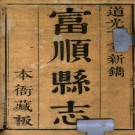 道光
新鐫
富順縣志
本衙藏板